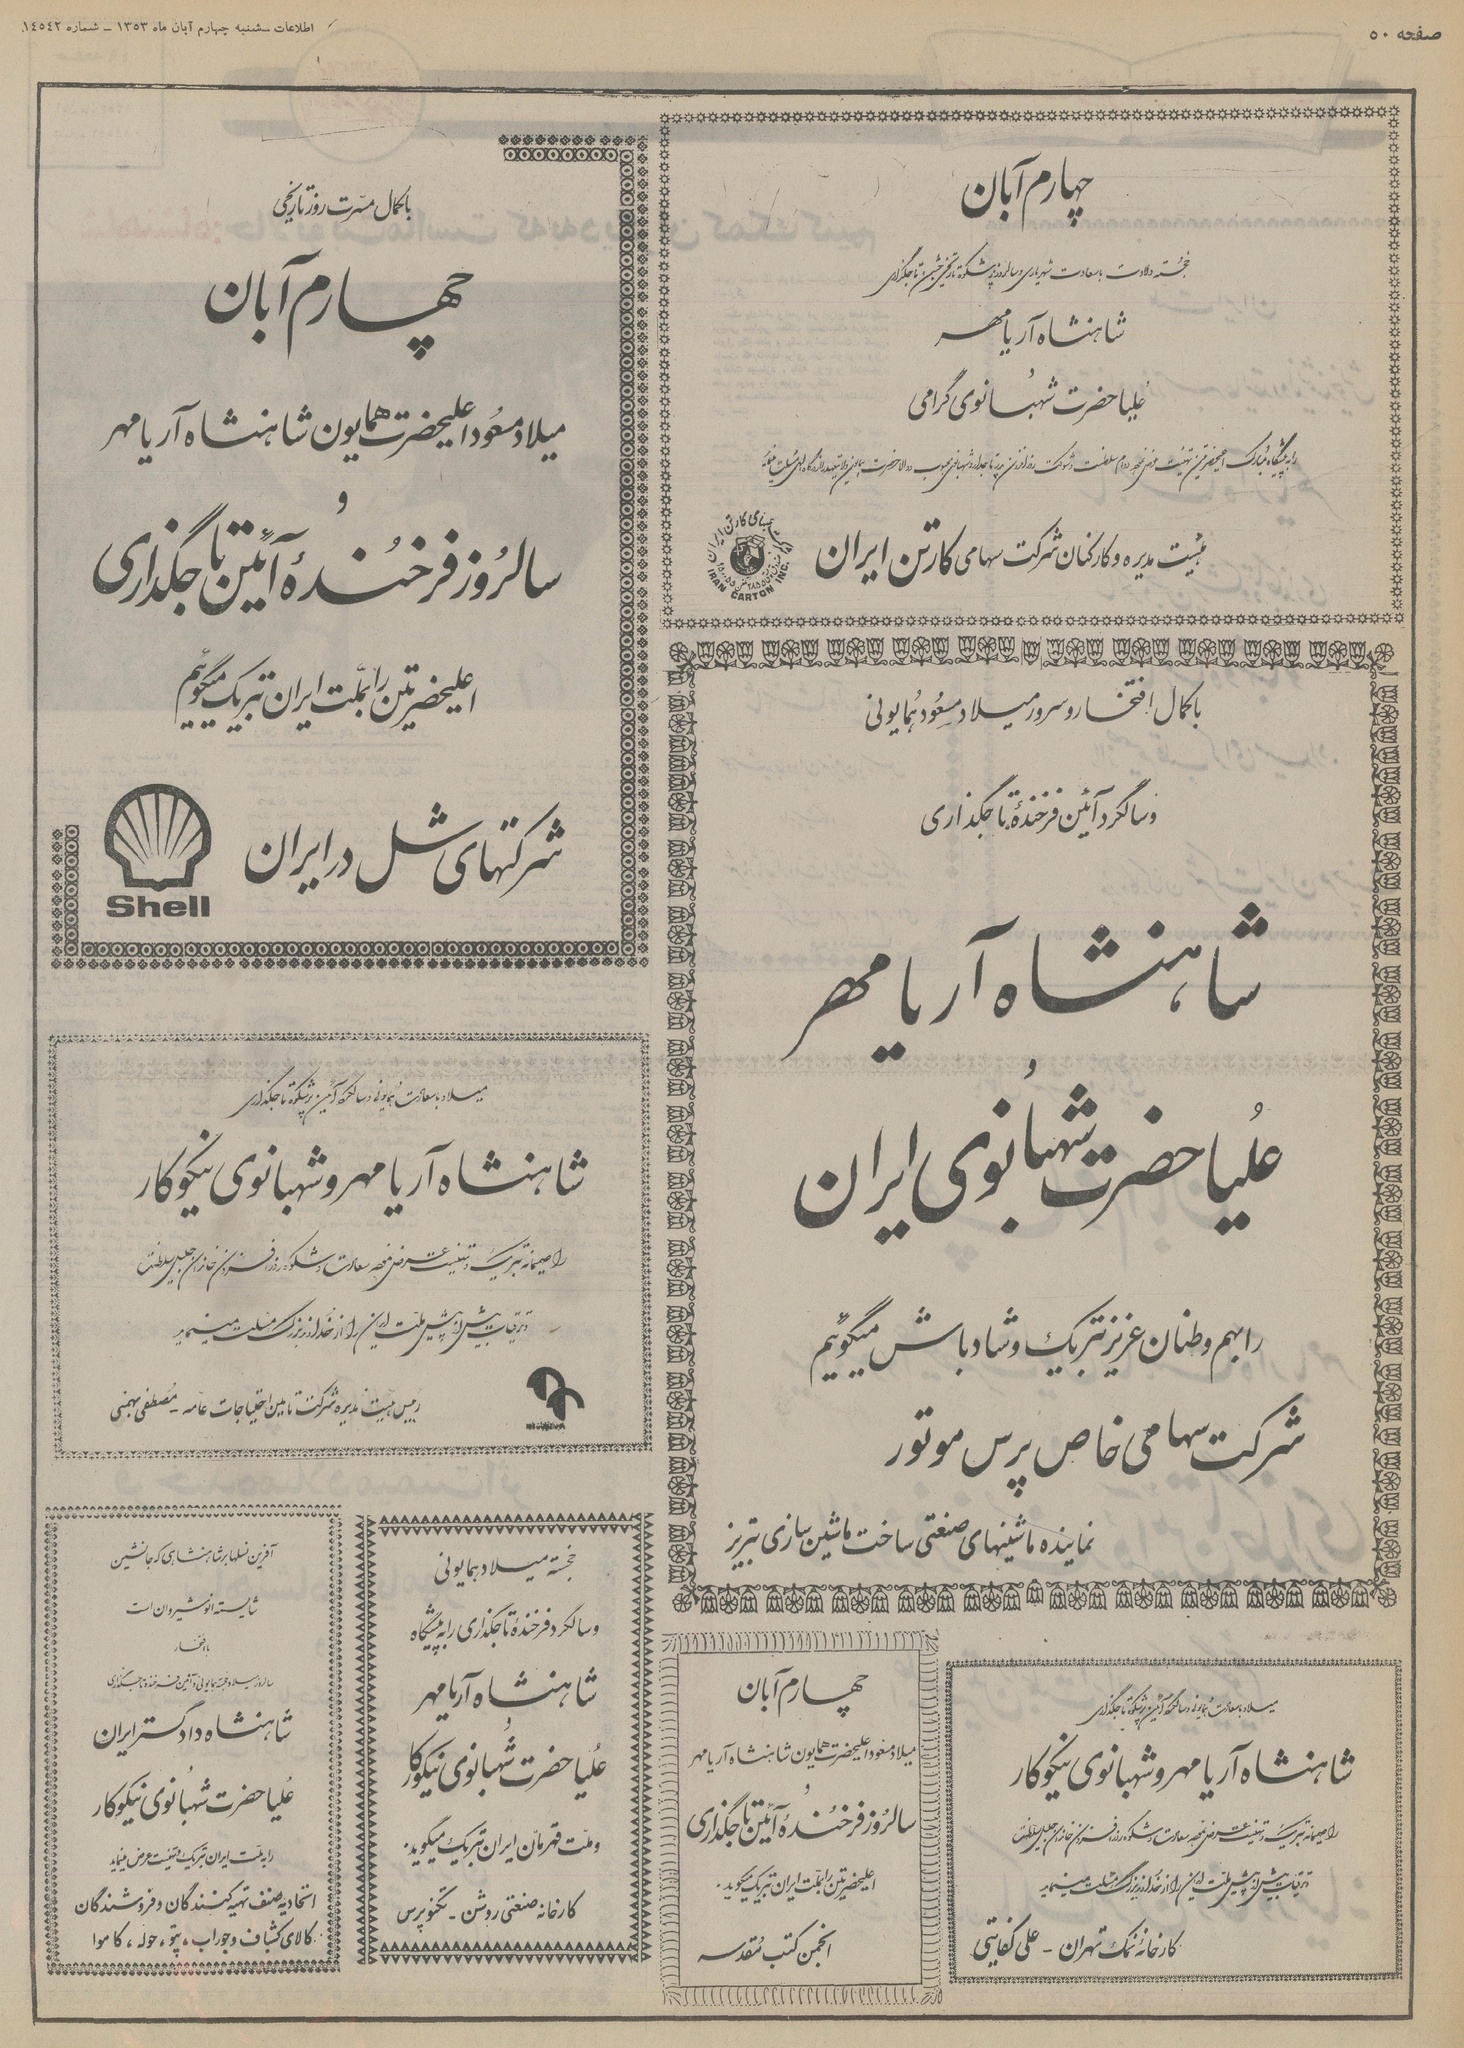 صفحه ٥٠
اطلاعات سه‌شنبه چهارم آبان ماه ١٣٥٣ - شماره ١٤٥٤٢
چهارم آبان
خجسته ولادت باسعادت شهریاری و سالروز پرشکوه تاریخی جشن تاجگذاری
شاهنشاه آریامهر
و
علیاحضرت شهبانوی گرامی
هیئت مدیره و کارکنان شرکت سهامی کارتن ایران
IRAN CARTON INC.
باکمال مسرت روز تاریخی
چهارم آبان
میلاد مسعود اعلیحضرت همایون شاهنشاه آریامهر
و
سالروز فرخنده آئین تاجگذاری
اعلیحضرتین را بملت ایران تبریک میگوئیم
شرکتهای شل در ایران
Shell
باکمال افتخار و سرور میلاد مسعود همایونی
و سالگرد آئین فرخنده تاجگذاری
شاهنشاه آریامهر
و
علیاحضرت شهبانوی ایران
را بهم وطنان عزیز تبریک و شادباش میگوئیم
شرکت سهامی خاص پرس موتور
نماینده ماشینهای صنعتی ساخت ماشین سازی تبریز
میلاد باسعادت همایونی و سالگرد آئین پرشکوه تاجگذاری
شاهنشاه آریامهر و شهبانوی نیکوکار
را صمیمانه تبریک و تهنیت عرض نموده سعادت و شکوه روزافزون خاندان جلیل سلطنت
و ترقیات بیش از پیش ملت ایران را از خداوند بزرگ مسئلت مینماید
رئیس هیئت مدیره شرکت تامین احتیاجات عامه - مصطفی بهمنی
آفرین نسلها بر شاهنشاهی که جانشین
شایسته انوشیروان است
با افتخار
سالروز میلاد خجسته همایونی و آئین فرخنده تاجگذاری
شاهنشاه دادگستر ایران
و
علیاحضرت شهبانوی نیکوکار
را به ملت ایران تبریک و تهنیت عرض مینماید
اتحادیه صنف تهیه کنندگان و فروشندگان
کالای کشباف و جوراب، پتو، حوله، کاموا
خجسته میلاد همایونی
و سالگرد فرخنده تاجگذاری را به پیشگاه
شاهنشاه آریامهر
و
علیاحضرت شهبانوی نیکوکار
و ملت قهرمان ایران تبریک میگوید.
کارخانه صنعتی روشن - تکنوپرس
چهارم آبان
میلاد مسعود اعلیحضرت همایون شاهنشاه آریامهر
و
سالروز فرخنده آئین تاجگذاری
اعلیحضرتین را بملت ایران تبریک میگوید.
انجمن کتب مقدسه
میلاد باسعادت همایونی و سالگرد آئین پرشکوه تاجگذاری
شاهنشاه آریامهر و شهبانوی نیکوکار
را صمیمانه تبریک و تهنیت عرض نموده سعادت و شکوه روزافزون خاندان جلیل سلطنت
و ترقیات بیش از پیش ملت ایران را از خداوند بزرگ مسئلت مینماید
کارخانه نمک تهران - علی کفایتی